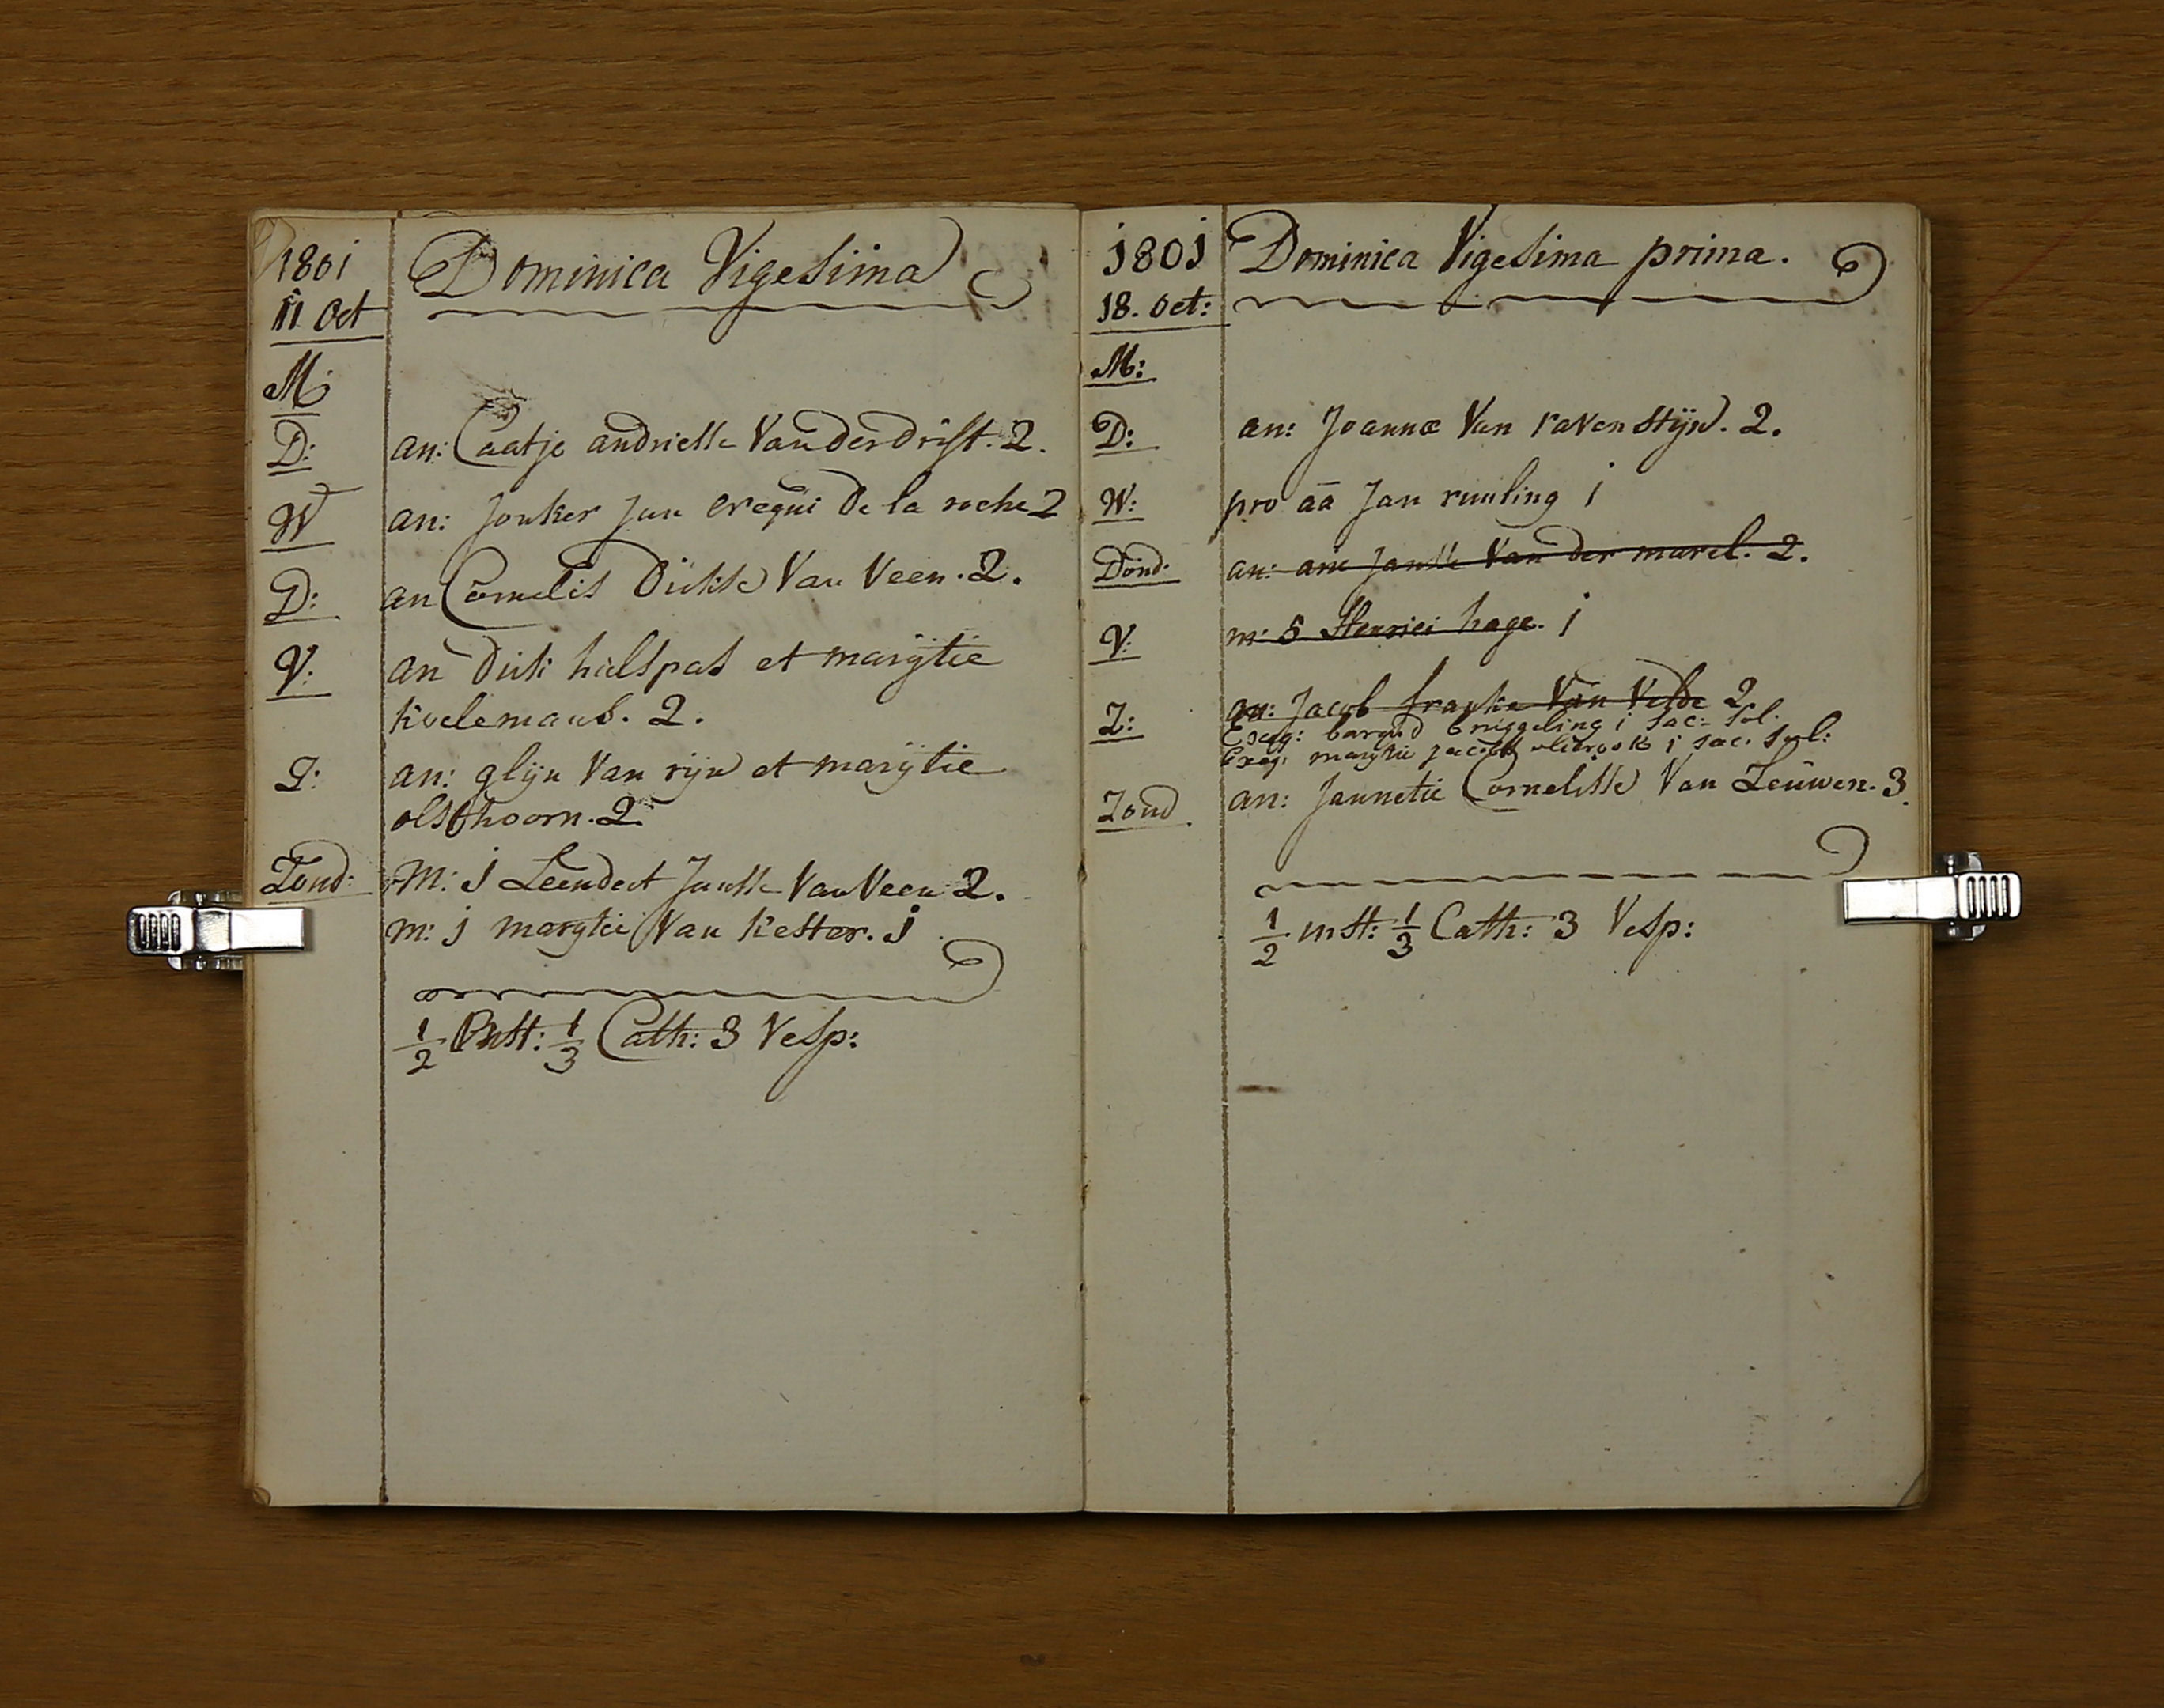 1801
11 Oct
Dominica Vigesima
M:
D: an: Caatje andriesse Van der Drift. 2.
W an: Jonker Jan crequi De la roche 2
D: an Cornelis Dirkse Van Veen. 2.
V: an Dirk halspas et marijtie
koelemans. 2.
Z: an: glijn Van rijn et marijtie
olsthoorn. 2.
Zond: M: j Leendert Jansse Van Veen 2.
m: j marytie Van Kester. j
1/2 Inst: 1/3 Cath: 3 Vesp:
1801
18. Oct:
Dominica Vigesima prima.
M:
D: an: Joannæ Van ravensteijn. 2.
W: pro āā Jan ruuling j
Dond: an: arie Jansse Van der marel. 2.
V: m: 5 Henrici hage. j
Z: an: Jacob franke Van Velde 2
Exeq: briggeling j Sac: Sol.
Exeq: marytie Jacobs j sac. Sol:
Zond an: Jannetie Cornelisse Van Leuwen. 3.
1/2 inst: 1/3 Cath: 3 Vesp: